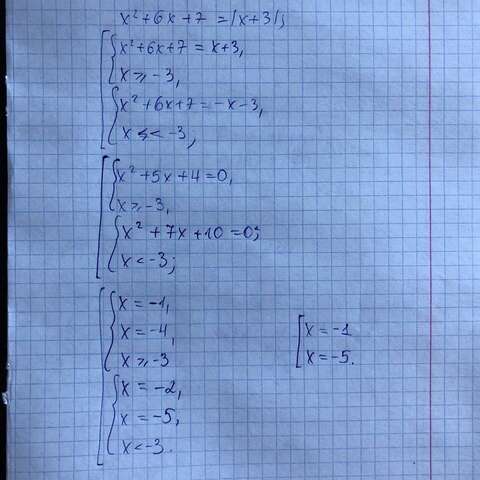 x² + 6x + 7 = |x+3|;
x² + 6x + 7 = x+3,
x ⩾ -3,
x² + 6x + 7 = -x-3,
x < -3,
x² + 5x + 4 = 0,
x ⩾ -3,
x² + 7x + 10 = 0;
x < -3;
x = -1,
x = -4,
x ⩾ -3
x = -2,
x = -5,
x < -3.
x = -1
x = -5.